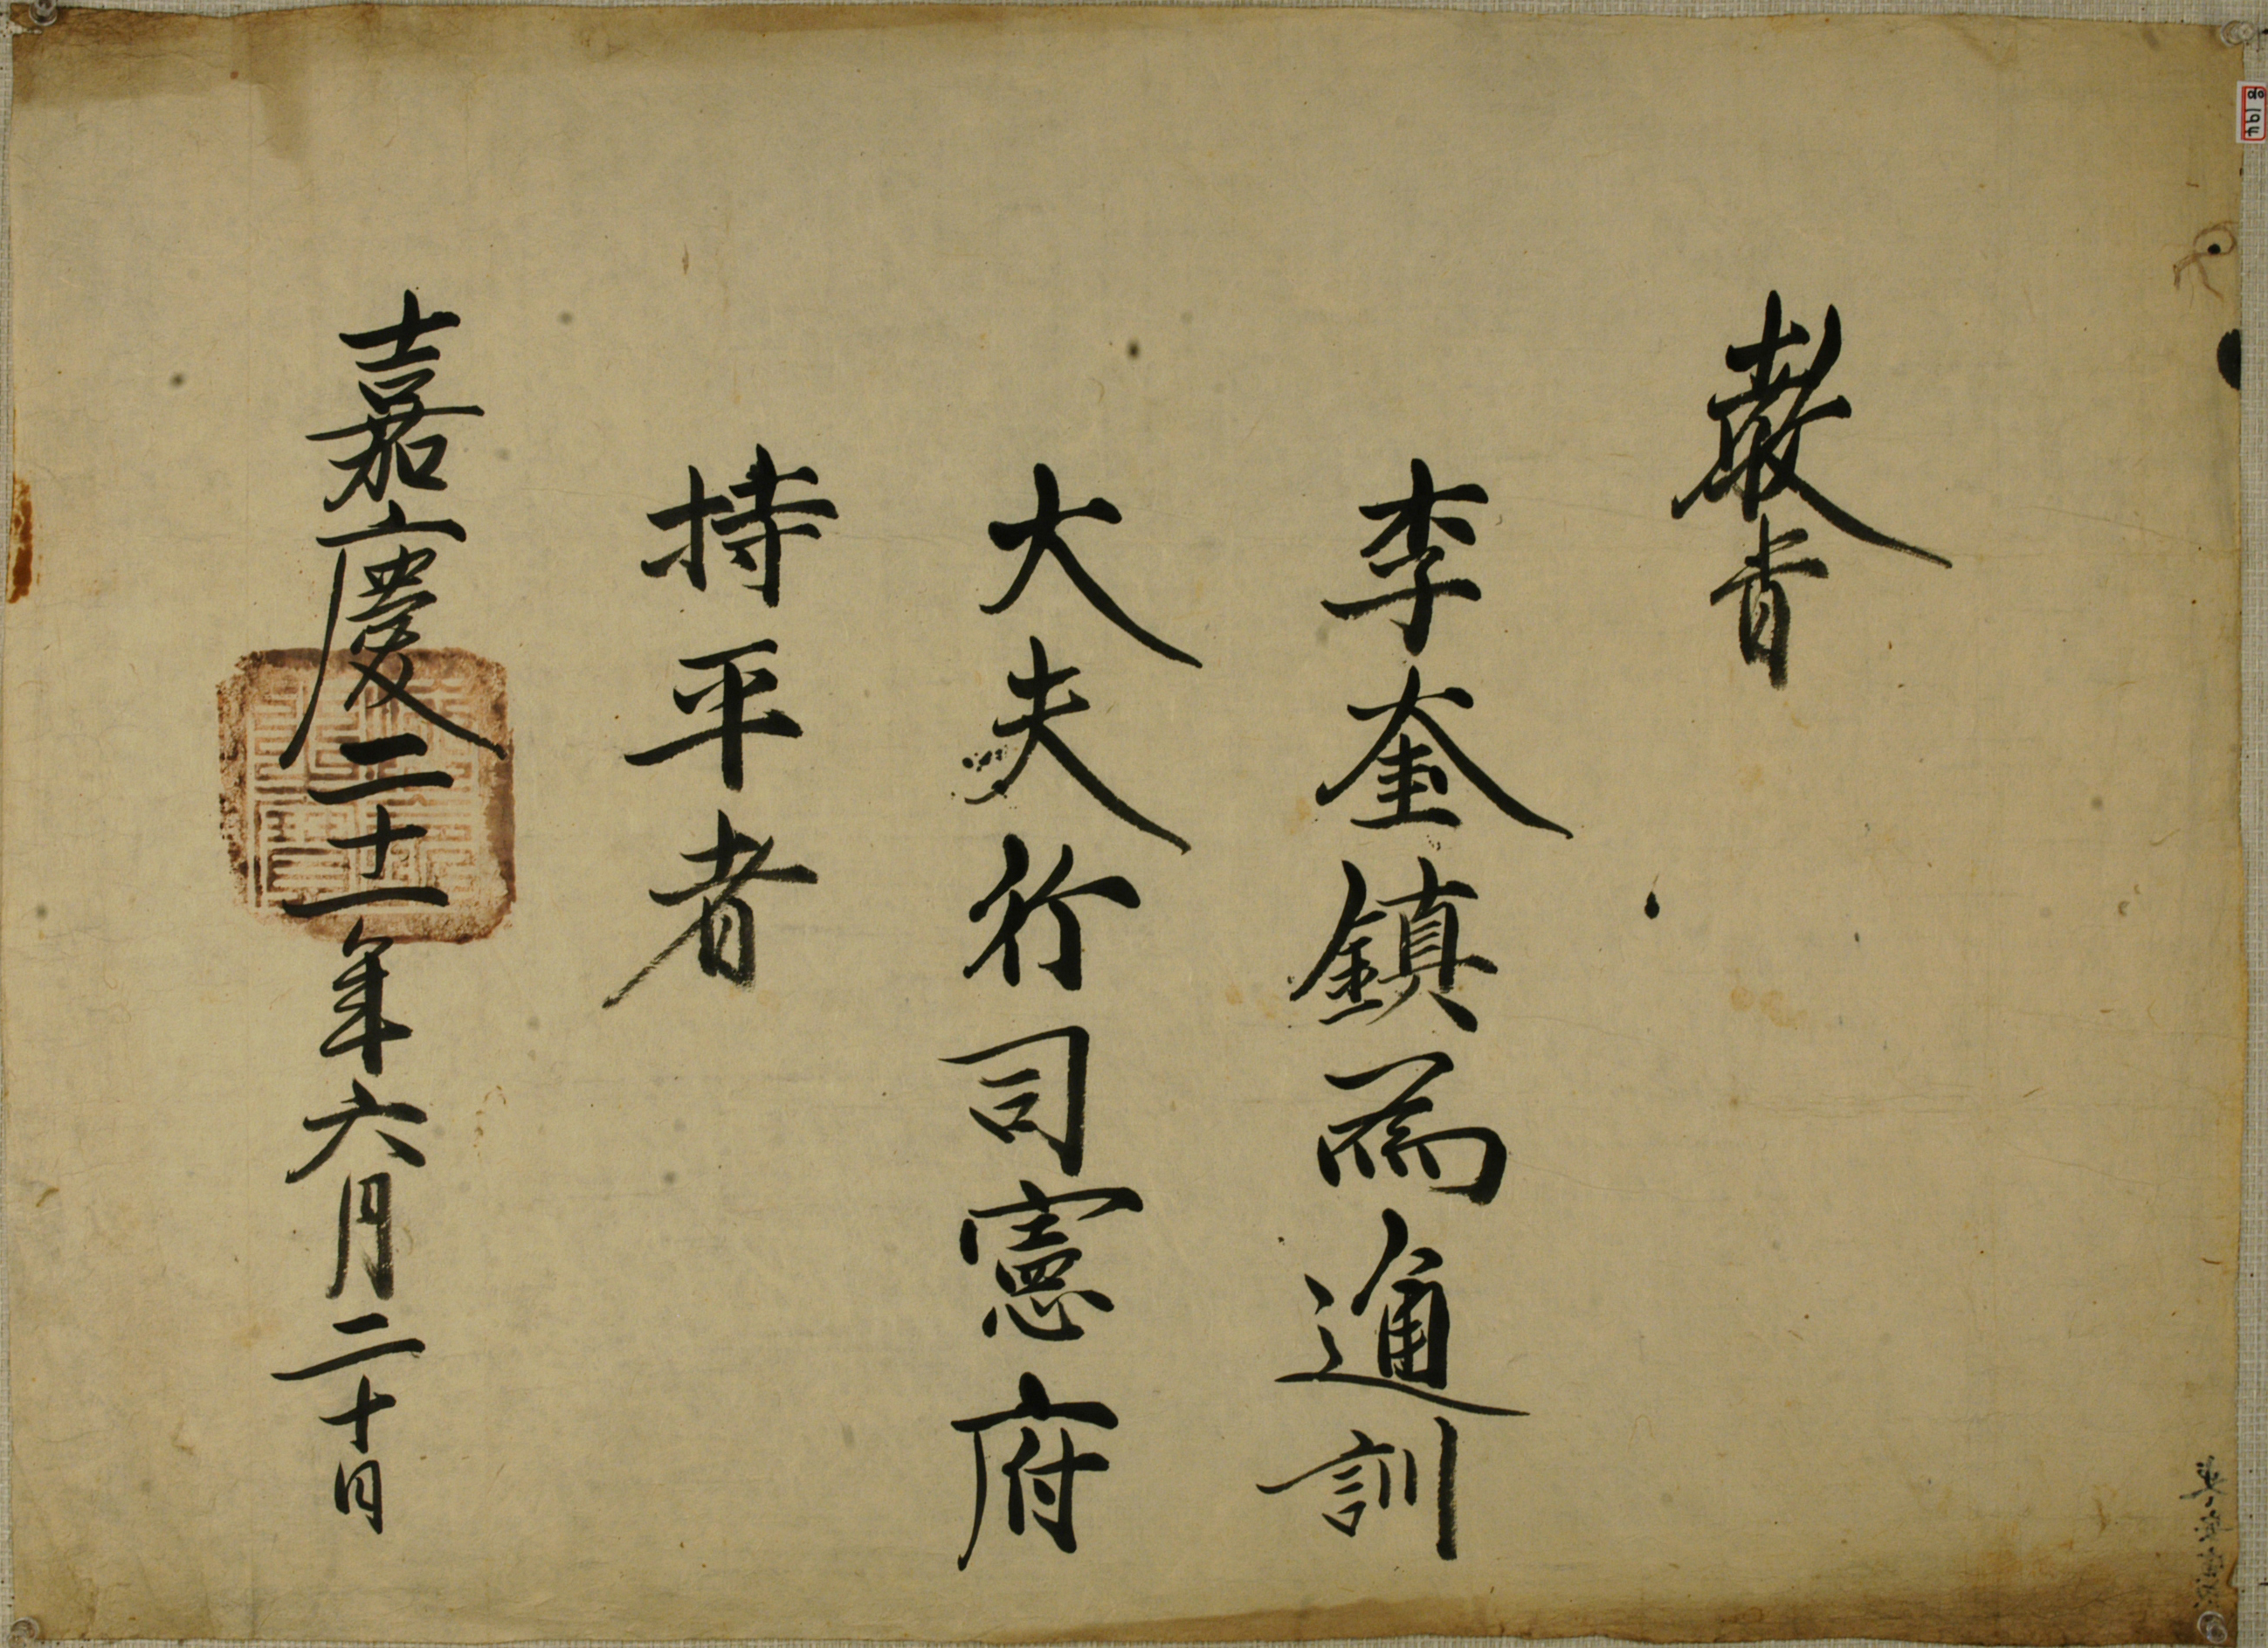 敎旨
李奎鎭爲通訓
大夫行司憲府
持平者
嘉慶二十一年六月二十日